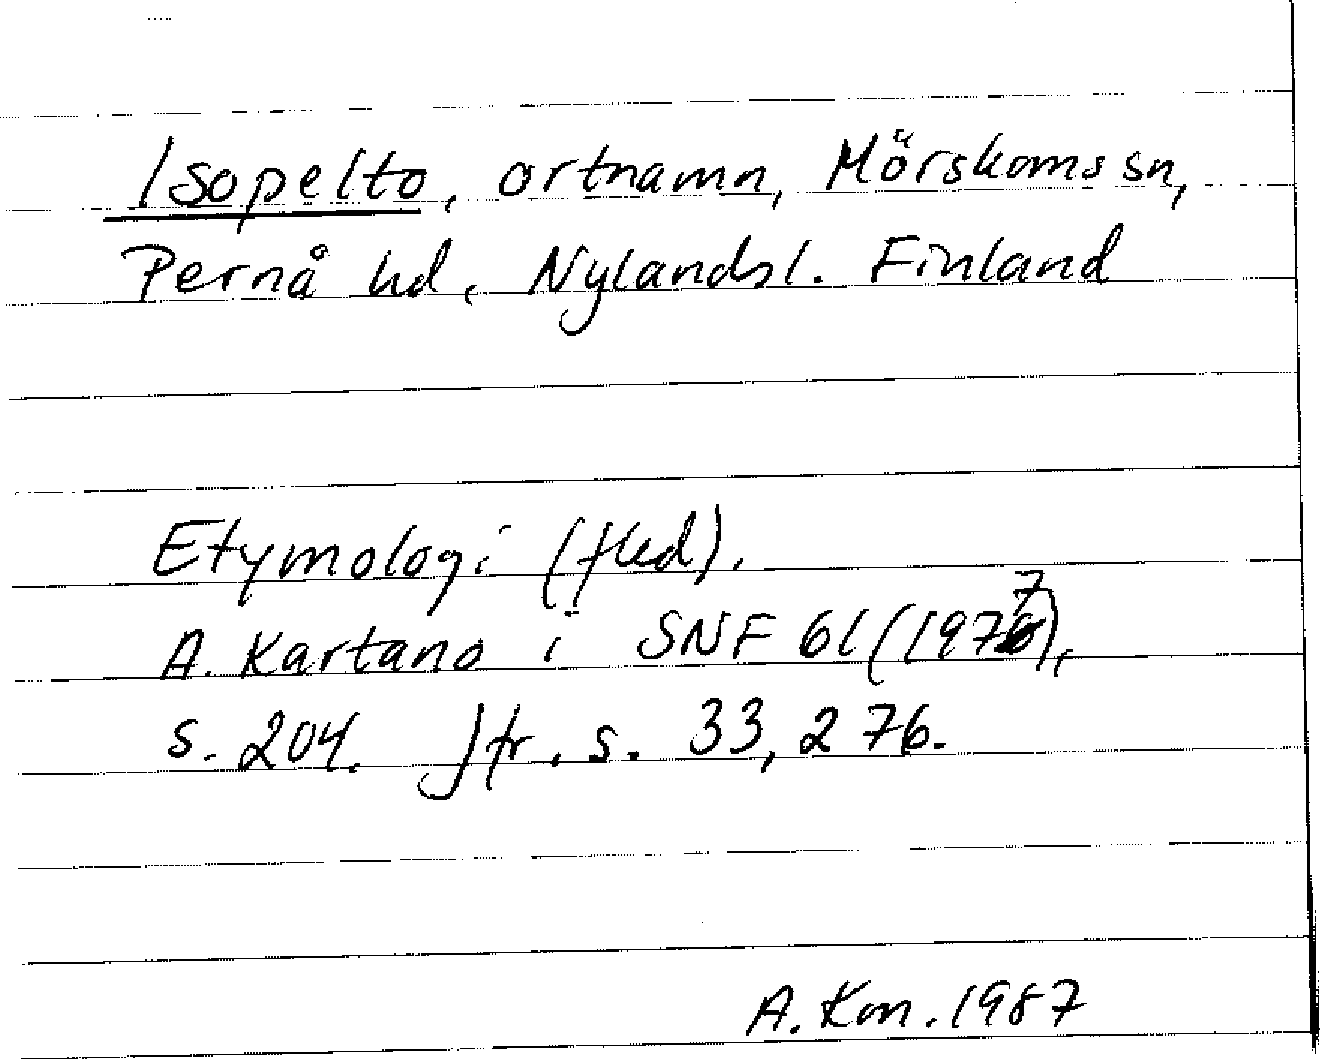 Isopelto, ortnamn, Mörskoms sn,
Pernå hd, Nylandsl. Finland
Etymologi (fled).
A. Kartano i SNF 61 (1977),
s. 204. Jfr. s. 33, 276.
A. Kon. 1987